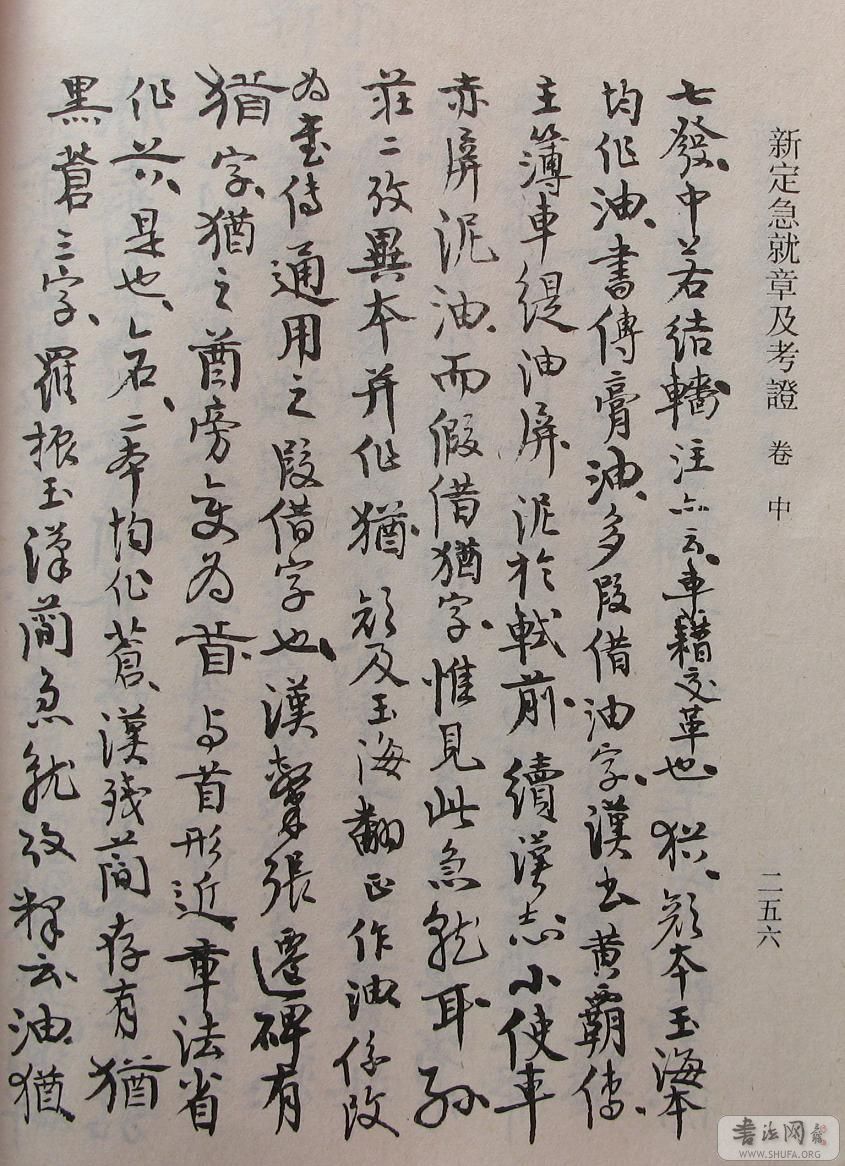 新定急就章及考證 卷中
二五六
七發中若結轖注亦云車籍交革也猶顔本玉海本
均作油書傳膏油多叚借油字漢書黄霸傳
主簿車緹油屏泥於軾前續漢志小使車
赤屏泥油而假借猶字惟見此急就耳孙
莊二攷異本并作猶顔及玉海翻正作油係改
為書傳通用之叚借字也漢張遷碑有
猶字猶之酋旁變為首与首形近章法省
作是也名二本均作蒼漢殘蕑存有猶
黑蒼三字羅振玉漢蕑急就攷釋云油猶
書法网
WWW.SHUFA.ORG